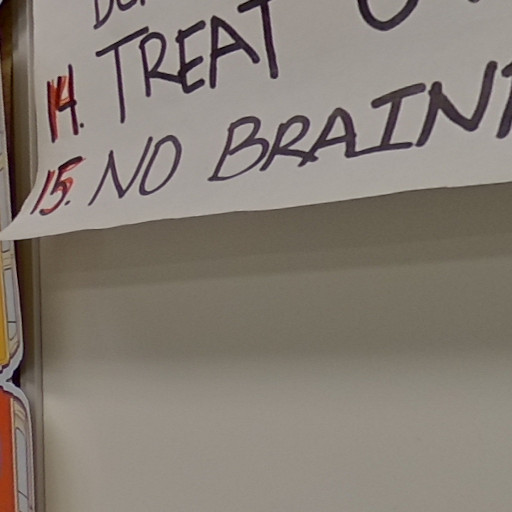 14. TREAT
15. NO BRAIN